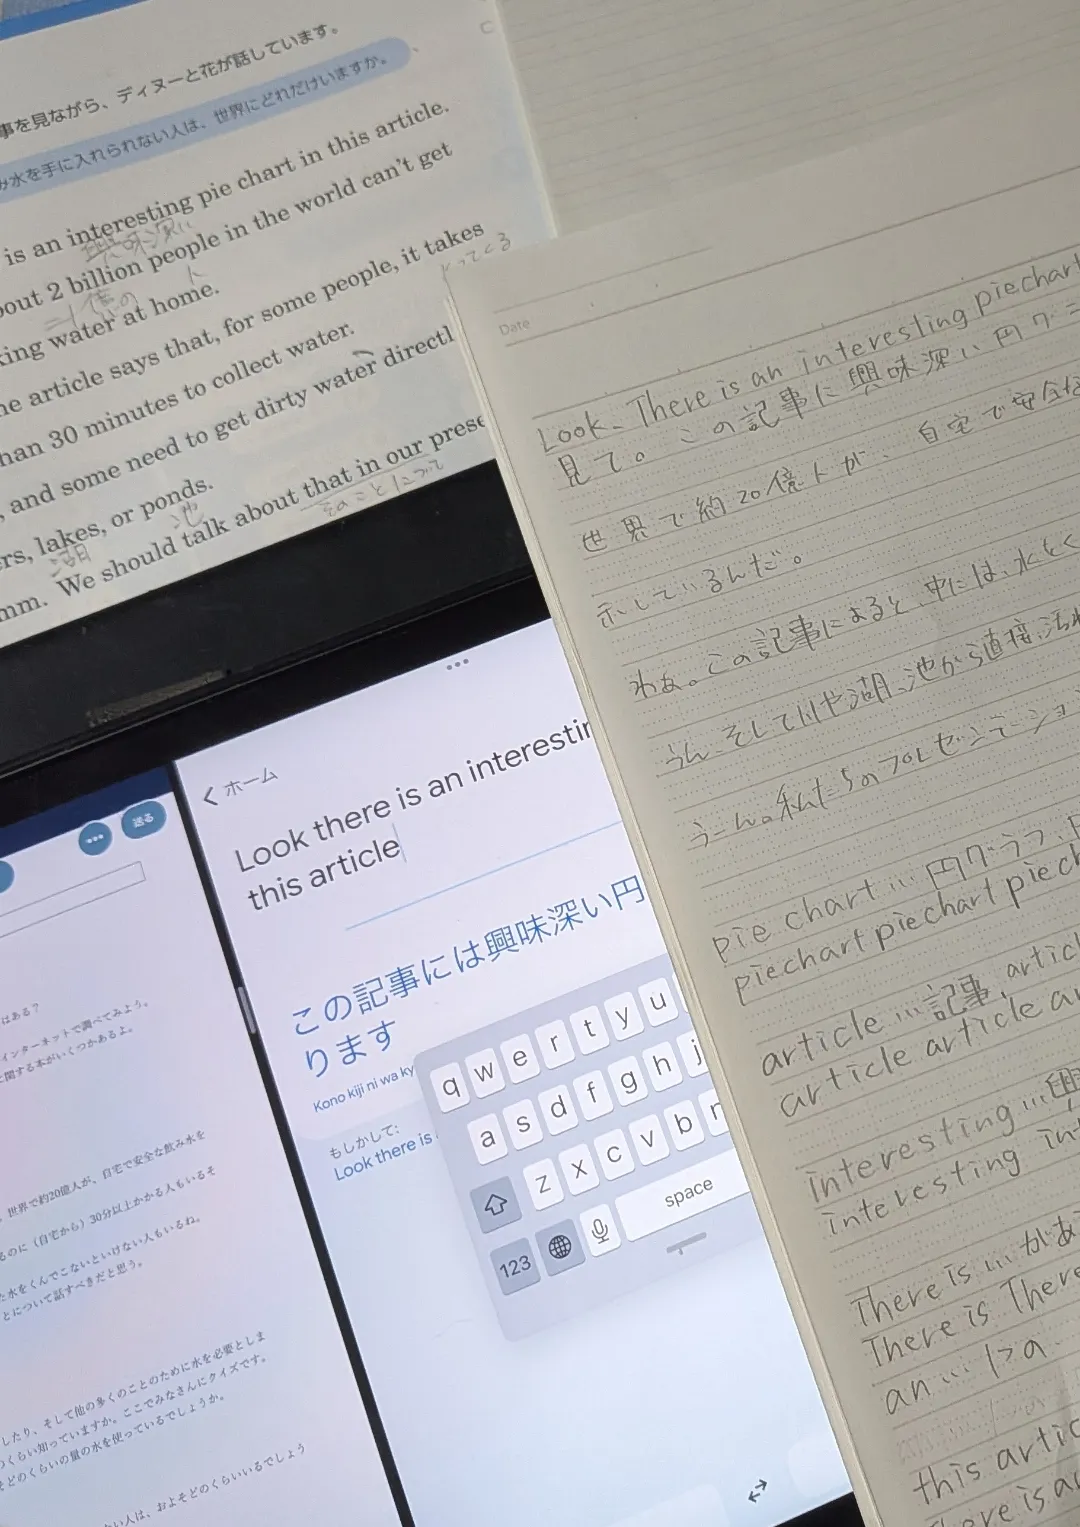 事を見ながら、ディヌーと花が話しています。
み水を手に入れられない人は、世界にどれだけいますか。
is an interesting pie chart in this article.
興味深い
bout 2 billion people in the world can't get
king water at home.
he article says that, for some people, it takes
とってくる
han 30 minutes to collect water.
, and some need to get dirty water directl
ers, lakes, or ponds.
湖 池
mm. We should talk about that in our prese
そのことについて
Date
Look. There is an interesting piechart
この記事に興味深い円グラ
見て。
世界で約20億人が、自宅で安全な
示しているんだ。
わあ。この記事によると、中には、水をく
うん、そして川や湖、池から直接、汚れ
うーん。私たちのプレゼンテーション
pie chart … 円グラフ、
piechart piechart piech
article … 記事, artic
article article ar
interesting … 興
interesting int
There is … があ
There is There
an … 1つの
this artic
here is a
ホーム
Look there is an interestin
this article
この記事には興味深い円
ります
Kono kiji ni wa ky
もしかして:
Look there is
q w e r t y u
a s d f g h j
z x c v b n
123 space
送る
はある？
インターネットで調べてみよう。
に関する本がいくつかあるよ。
、世界で約20億人が、自宅で安全な飲み水を
るのに（自宅から）30分以上かかる人もいるそ
た水をくんでこないといけない人もいるね。
とについて話すべきだと思う。
したり、そして他の多くのことのために水を必要としま
のくらい知っていますか。ここでみなさんにクイズです。
そどのくらいの量の水を使っているでしょうか。
ない人は、およそどのくらいいるでしょう